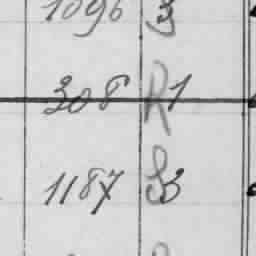 1096 3
308 R1
1187 S3